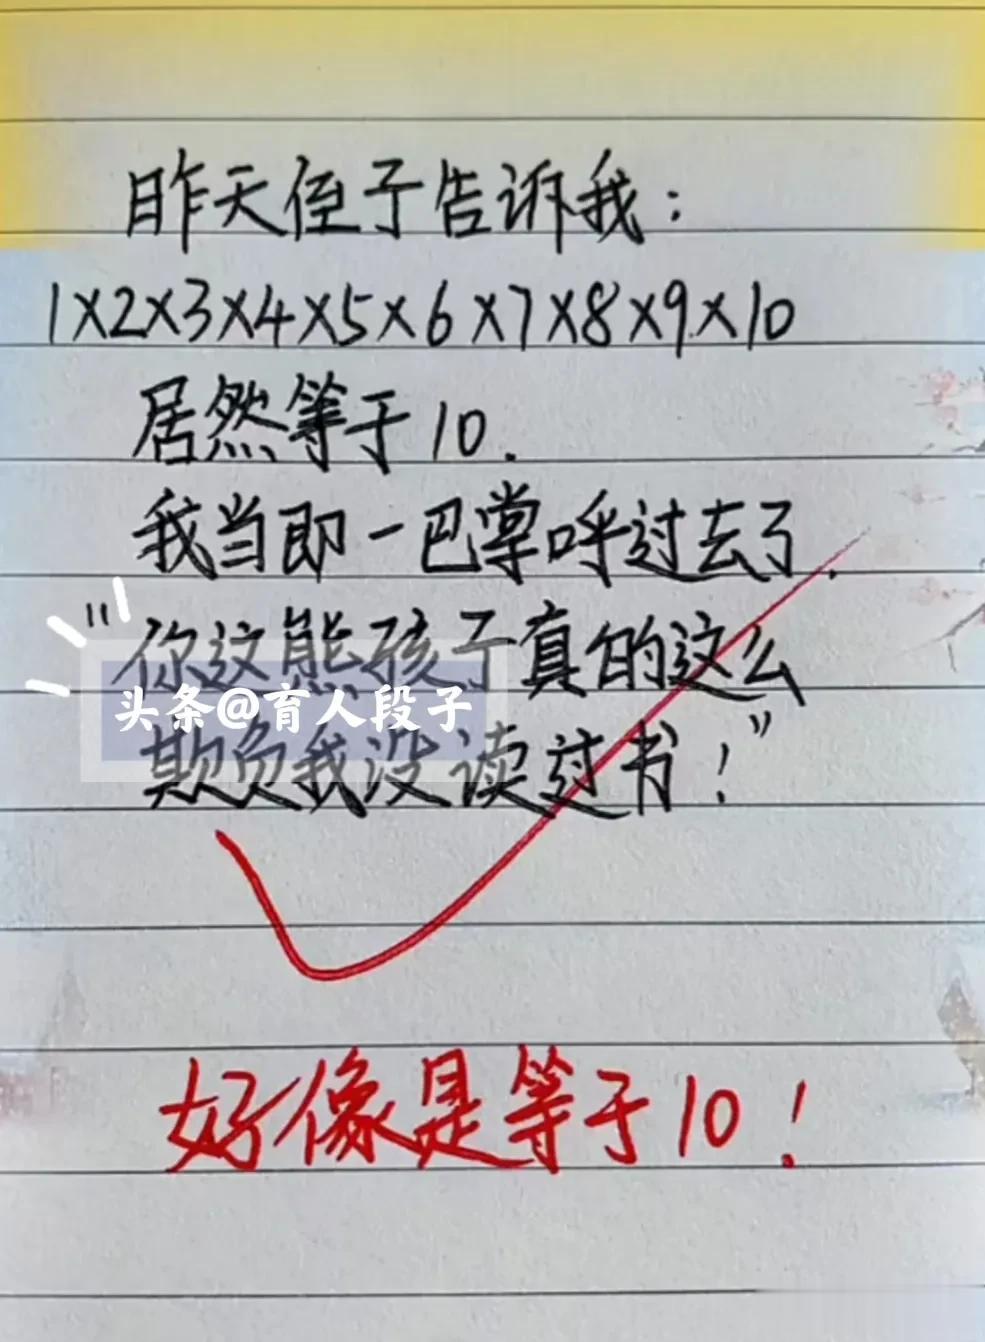 昨天侄子告诉我：
1×2×3×4×5×6×7×8×9×10
居然等于10.
我当即一巴掌呼过去了.
"你这熊孩子真的这么
头条@育人段子
欺负我没读过书！"
好像是等于10！